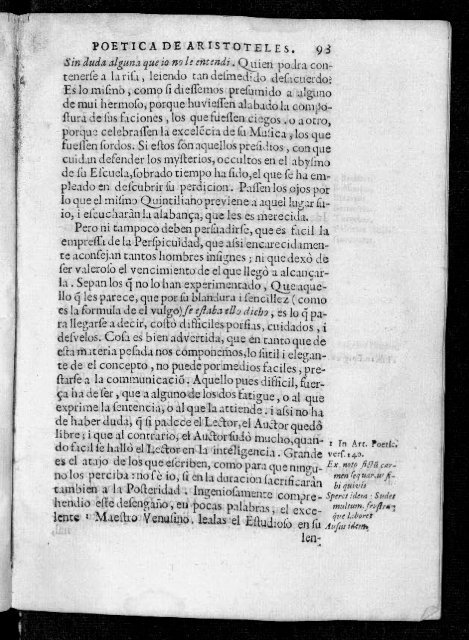 POETICA DE ARISTOTELES. 93
Sin duda alguna que io no le entendi. Quien podra con-
tenerse a la risa, leiendo tan desmedido desacuerdo?
Es lo mismo, como si diessemos presumido a alguno
de mui hermoso, porque huviessen alabado la compo-
stura de sus faciones, los que fuessen ciegos. o a otro,
porque celebrassen la excelẽcia de su Musica, los que
fuessen sordos. Si estos son aquellos presidios, con que
cuidan defender los mysterios, occultos en el abysmo
de su Escuela, sobrado tiempo ha sido, el que se ha em-
pleado en descubrir su perdicion. Passen los ojos por
lo que el mismo Quintiliano previene a aquel lugar su-
io, i escucharàn la alabança, que les es merecida.
Pero ni tampoco deben persuadirse, que es facil la
empressa de la Perspicuidad, que assi encarecidamen-
te aconsejan tantos hombres insignes; ni que dexò de
ser valeroso el vencimiento de el que llegò a alcançar-
la. Sepan los q̃ no lo han experimentado, Que aque-
llo q̃ les parece, que por su blandura i sencillez (como
es la formula de el vulgo) se estaba ello dicho, es lo q̃ pa-
ra llegarse a decir, costò difficiles porfias, cuidados, i
desvelos. Cosa es bien advertida, que en tanto que de
esta materia pesada nos componemos, lo sutil i elegan-
te de el concepto, no puede por medios faciles, pre-
starse a la communicaciõ. Aquello pues difficil, fuer-
ça ha de ser, que a alguno de los dos fatigue, o al que
exprime la sentencia, o al que la attiende. i assi no ha
de haber duda, q̃ si padece el Lector, el Auctor quedò
libre; i que al contrario, el Auctor sudò mucho, quan-
do facil se hallò el Lector en la intelligencia. Grande
es el atajo de los que escriben, como para que ningu-
no los perciba: no sè io, si en la duracion sacrificaràn
tambien a la Posteridad. Ingeniosamente compre-
hendio este desengaño, en pocas palabras, el exce-
lente 1 Maestro Venusino, lealas el Estudioso en su
len-
1 In Art. Poetic.
vers. 240.
Ex noto fictũ car-
men sequar, ut si-
bi quivis
Speret idem: Sudet
multum, frustraq;
que laboret
Ausus idem,